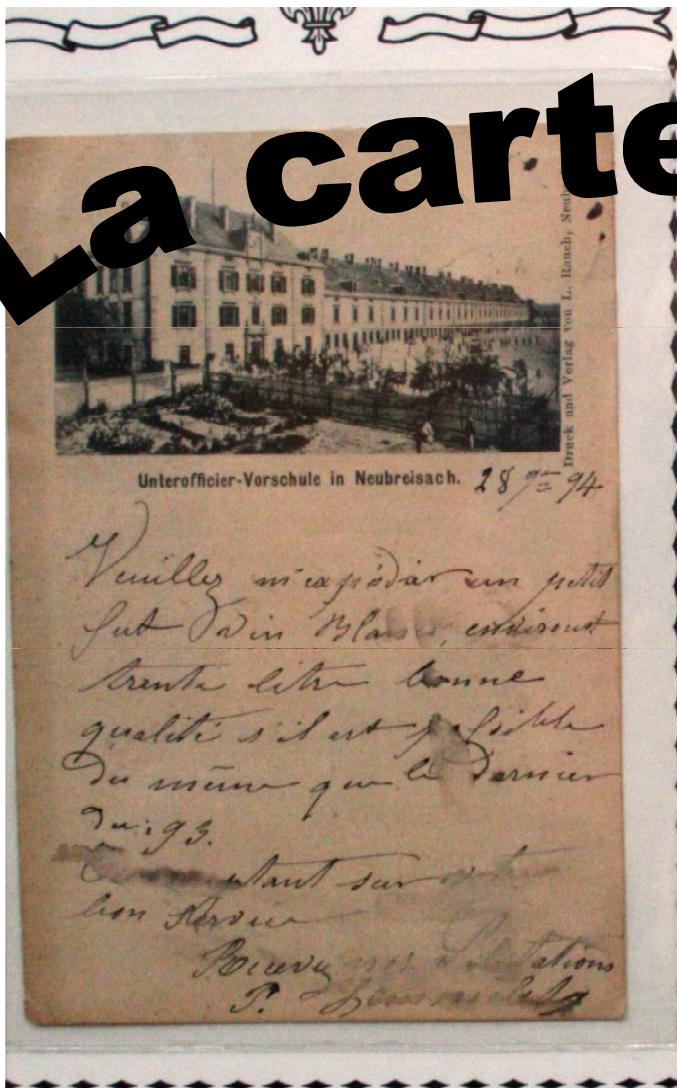 La carte
Druck und Verlag von L. Rauch, Neub
Unterofficier-Vorschule in Neubreisach. 28 9re 94
Veuillez m'expédier un petit
fut vin Blanc, environt
trente litre bonne
qualité s'il est possible
du même que le dernier
du 93.
sur
bon service
Recevez mes Salutations
P.